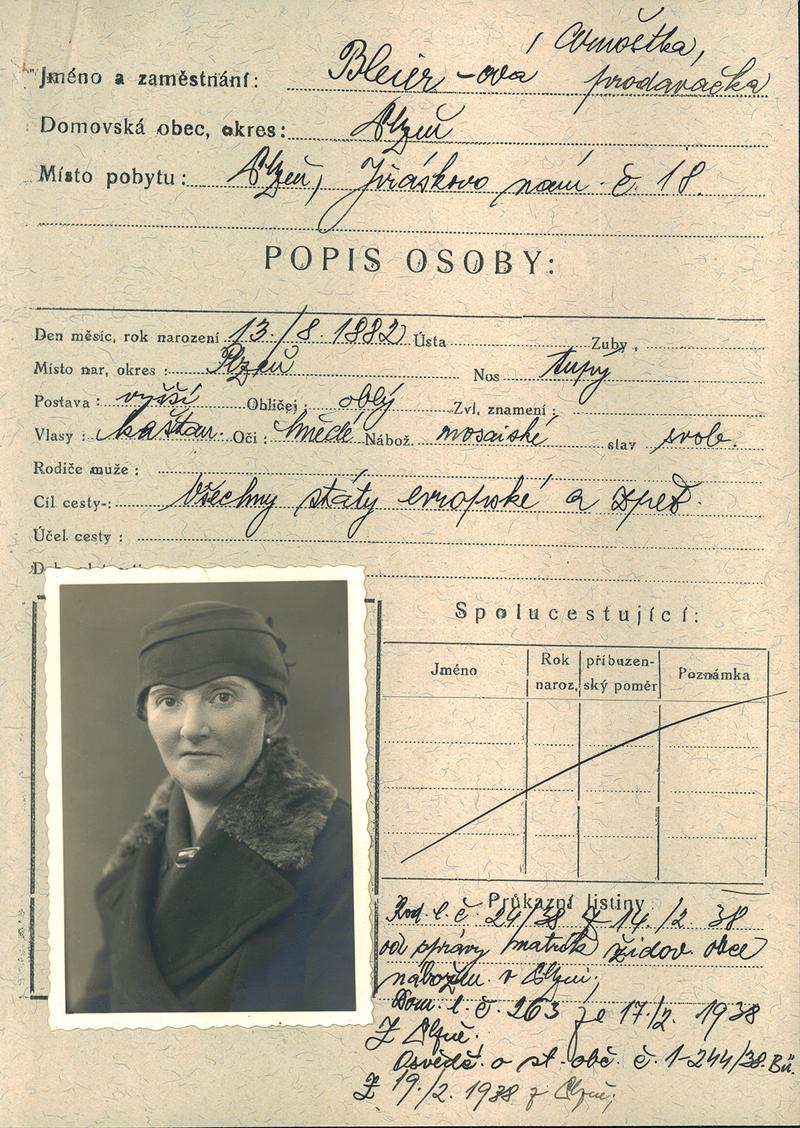 Arnoštka,
Jméno a zaměstnání: Bleier-ová prodavačka
Domovská obec, okres: Plzeň
Místo pobytu: Plzeň, Jiráskovo nám. č. 18.
POPIS OSOBY:
Den měsíc, rok narození 13./8. 1882 Ústa Zuby
Místo nar, okres: Plzeň Nos tupý
Postava: vyšší Obličej: oblý Zvl. znamení:
Vlasy: kaštan. Oči: hnědé Nábož. mosaiské stav svob.
Rodiče muže:
Cíl cesty-: Všechny státy evropské a zpeť.
Účel cesty:
Spolucestující:
Jméno Rok naroz. příbuzenský poměr Poznámka
Průkazní listiny
Rod. l. č. 24/38 z 14./2. 38
od správy matrik židov. obce
nábožen. v Plzni;
Dom. l. č. 263 ze 17./2. 1938
z Plzně;
Osvědč. o st. obč. č. 1-244/38. Bů.
z 19./2. 1938 z Plzně;